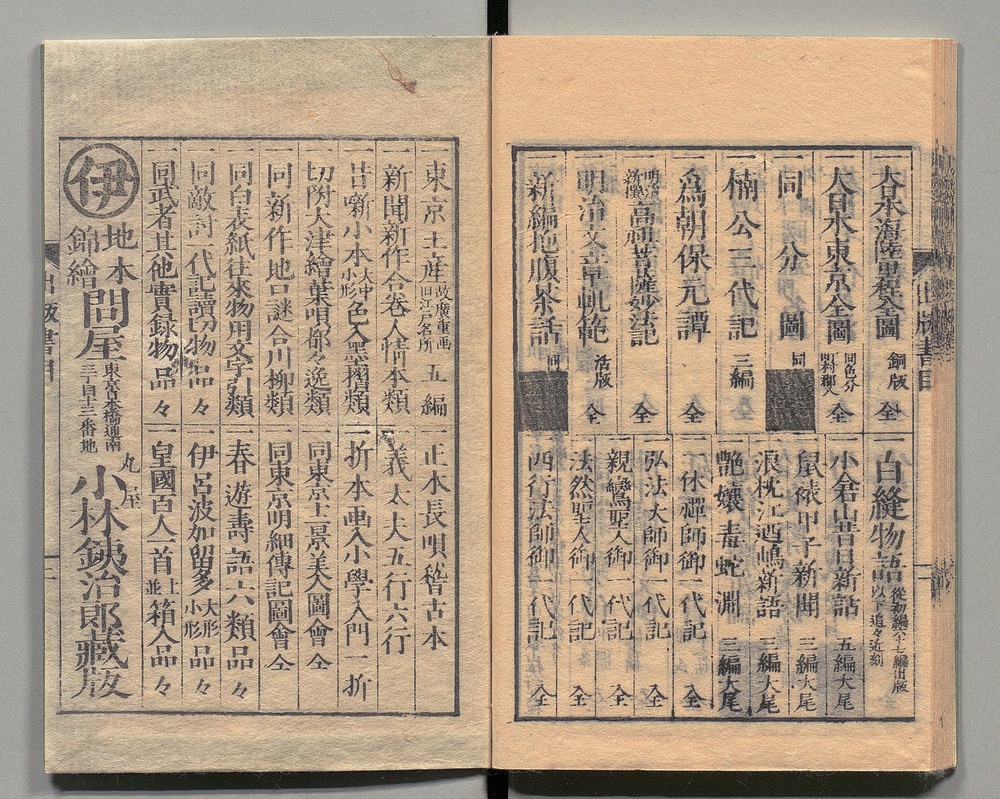 出版書目
一大日本海陸里程全圖 銅版 全
一大日本東京全圖 同色分 全
一同 分 圖 同
一楠公三代記 三編
一爲朝保元譚 全
一高祖菩薩妙法記 全
一明治文章軌範 活版 全
一新編抱腹茶話 同
一白縫物語 從初編六十七編出版 以下追々近刻
一小倉山昔日新話 五編大尾
一鼠裱甲子新聞 三編大尾
一浪枕江迺嶋新語 三編大尾
一艶孃毒蛇淵 三編大尾
一一休禪師御一代記 全
一弘法大師御一代記 全
一親鸞聖人御一代記 全
一法然聖人御一代記 全
一四行法師御一代記 全
一東京土産 故廣重画 旧江戸名所 五編
一新聞新作合巻人情本類
一昔噺小本 大中小形 色入墨摺類
一切附大津繪葉唄都々逸類
一同新作地口謎合川柳類
一同白表紙往來物用文字引類
一同敵討一代記讀切物品々
一同武者其他實録物品々
一正本長唄稽古本
一義太夫五行六行
一折本画入小學入門一折
一同東京十二景美人圖會 全
一同東京明細傳記圖會 全
一春遊壽語六類品々
一伊呂波加留多 大形 小形 品々
一皇國百人一首 上並 箱入品々
伊
地本
錦繪
問屋 東京京橋通南三丁目十三番地
丸屋
小林鐵治郎藏版
出版書目